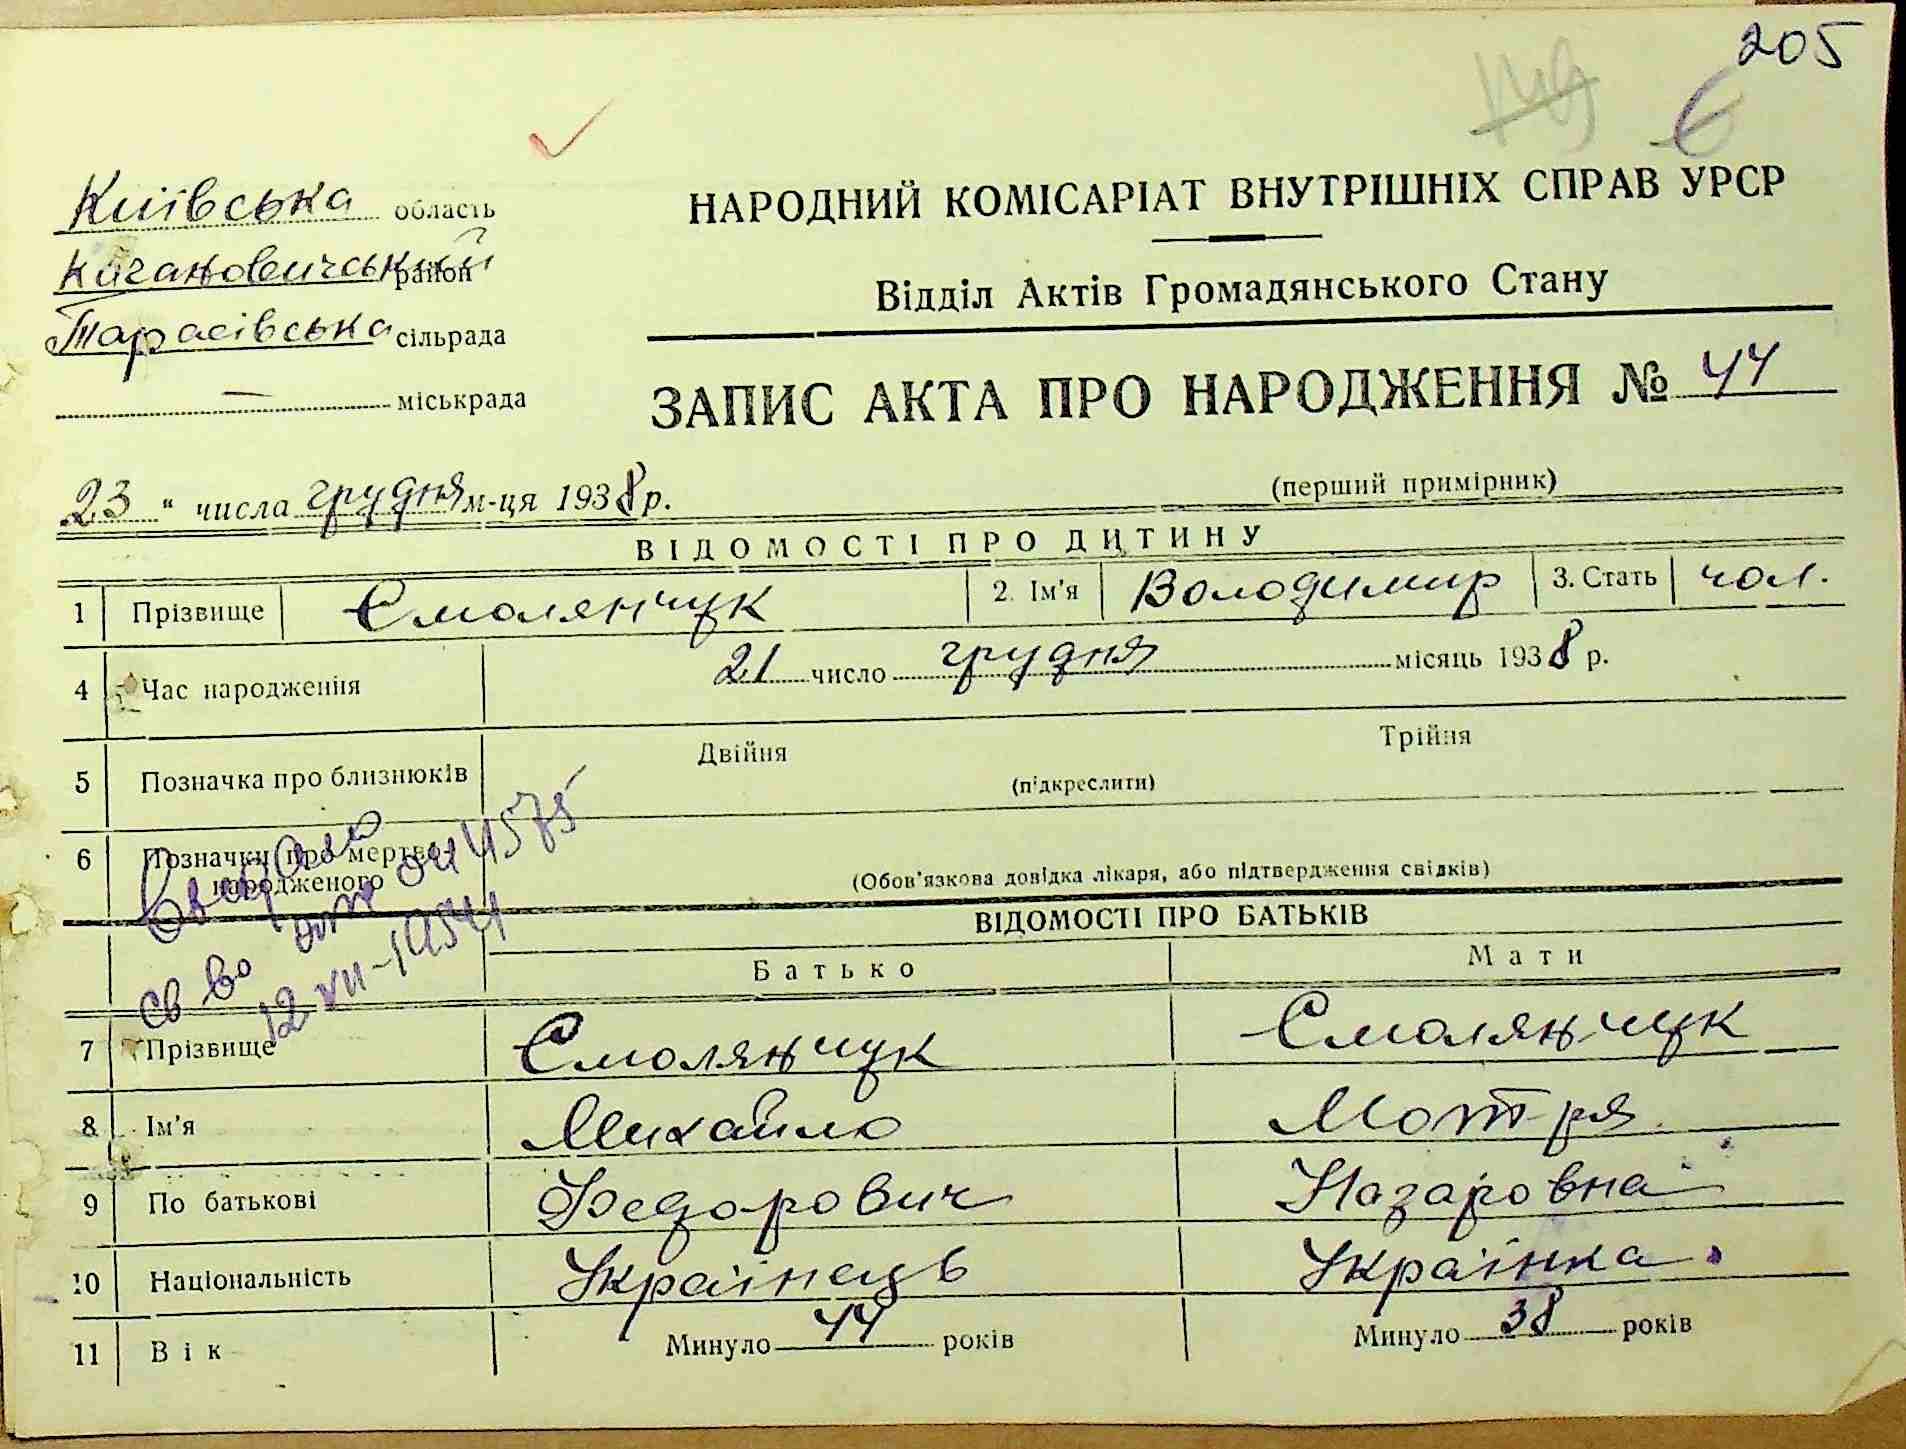 205
Київська область
Кагановичський район
Тарасівська сільрада
— міськрада
НАРОДНИЙ КОМІСАРІАТ ВНУТРІШНІХ СПРАВ УРСР
Відділ Актів Громадянського Стану
ЗАПИС АКТА ПРО НАРОДЖЕННЯ № 44
23 " числа грудня м-ця 1938 р.
(перший примірник)
ВІДОМОСТІ ПРО ДИТИНУ
1 Прізвище Смолянчук 2. Ім'я Володимир 3. Стать чол.
4 Час народження 21 число грудня місяць 1938 р.
5 Позначка про близнюків Двійня Трійня
(підкреслити)
6 Позначки про мертво-
народженого
(Обов'язкова довідка лікаря, або підтвердження свідків)
св во
12 VII-1954
ВІДОМОСТІ ПРО БАТЬКІВ
Батько Мати
7 Прізвище Смоляньчук Смоляньчук
8 Ім'я Михайло Мотря
9 По батькові Федорович Назаровна
10 Національність Українець Українка
11 Вік Минуло 44 років Минуло 38 років